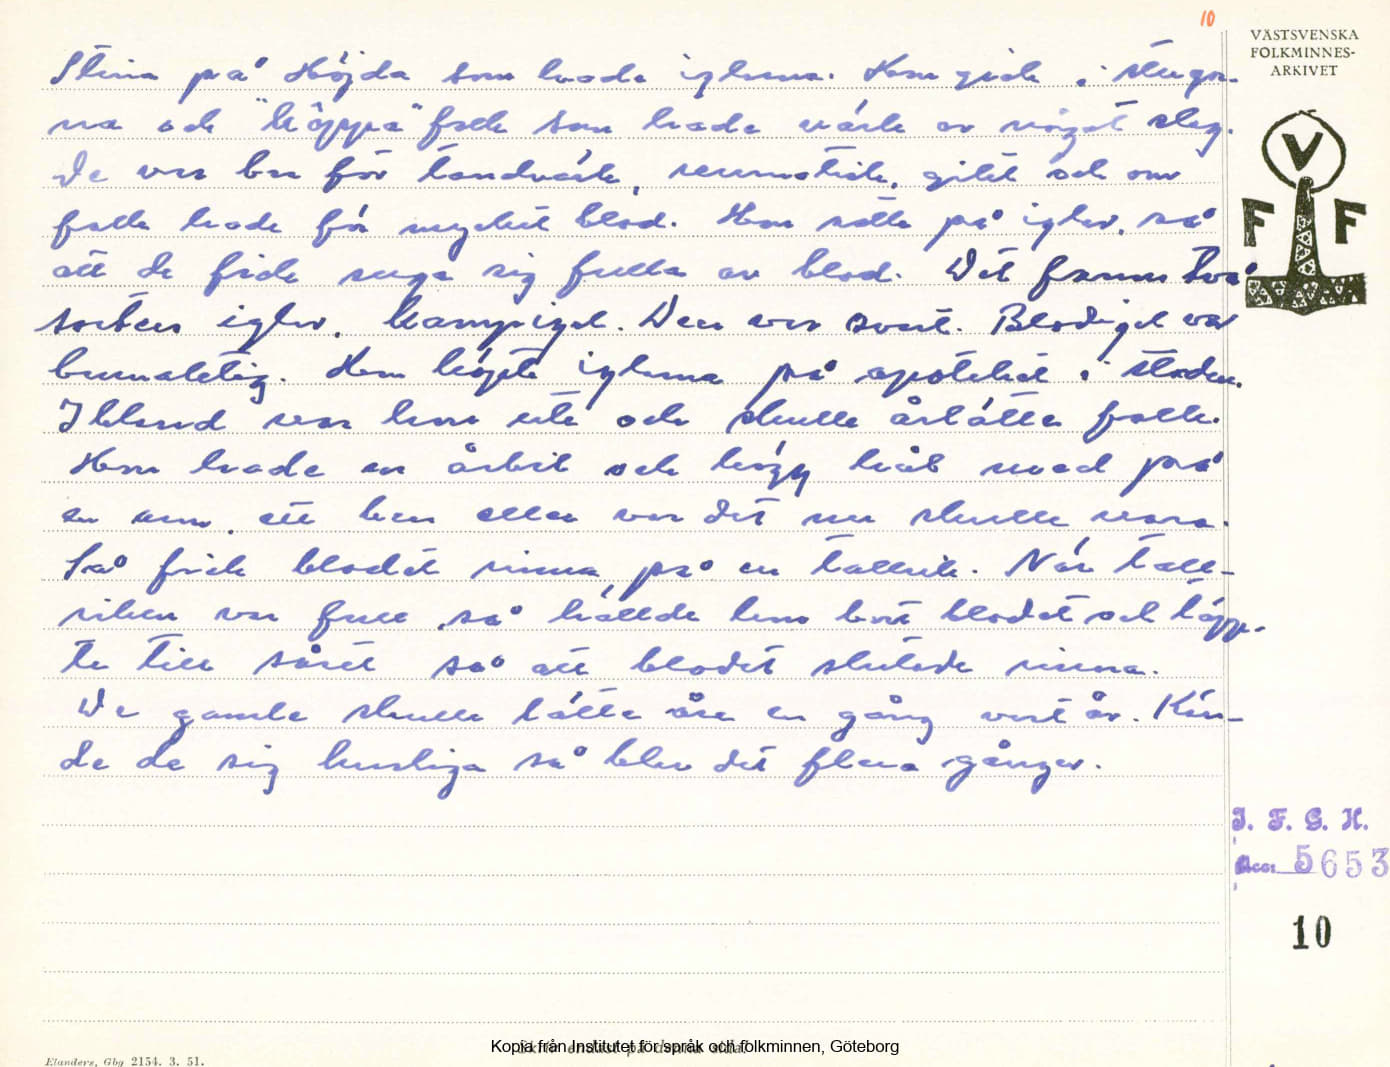 10
VÄSTSVENSKA
FOLKMINNES-
ARKIVET
Stina på Höjda som hade iglarna. Hon gick i stugor-
na och "köppa" folk som hade värk av något slag.
De var bra för tandvärk, reumatisk, gikt och om
folk hade för mycket blod. Hon satte på iglar, så
att de fick suga sig fulla av blod. Det fanns två
sorters iglar. Kampigel. Den var svart. Blodigel var
brunaktig. Hon köpte iglarna på apoteket i staden.
Ibland var hon ute och skulle åerlåtta folk.
Hon hade en årbil och högg hål med på
en arm, ett ben eller var det nu skulle vara.
Så fick blodet rinna på en tallrik. När tall-
riken var full, så hällde hon bort blodet och täpp-
te till såret så att blodet slutade rinna.
De gamle skulle låtta åre en gång vart år. Kän-
de de sig kurliga så blev det flera gånger.
V
F F
I. F. G. H.
Acc. 5653
10
Elanders, Gbg 2154. 3. 51.
Kopia från Institutet för språk och folkminnen, Göteborg